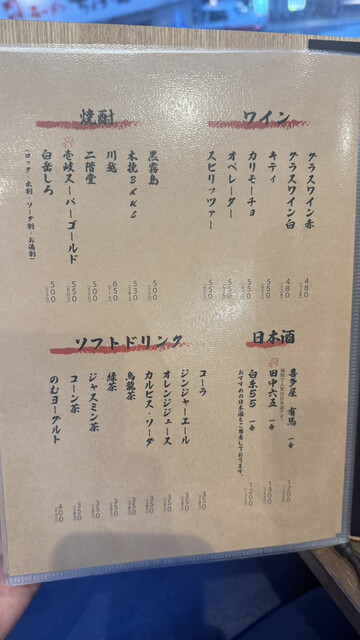 ワイン
グラスワイン赤 480
グラスワイン白 480
キティ 550
カリモーチョ 550
オペレーター 550
スピリッツァー 550
焼酎
黒霧島 500
木挽BLUE 530
川越 650
二階堂 500
壱岐スーパーゴールド 550
白岳しろ 500
(ロック・水割・ソーダ割・お湯割)
日本酒
喜多屋 有馬 一合 1200
田中六五 一合 1300
白糸55 一合 1200
おすすめの日本酒もご用意しております。
ソフトドリンク
コーラ 350
ジンジャーエール 350
オレンジジュース 350
カルピス・ソーダ 350
烏龍茶 350
緑茶 350
ジャスミン茶 350
コーン茶 350
のむヨーグルト 400